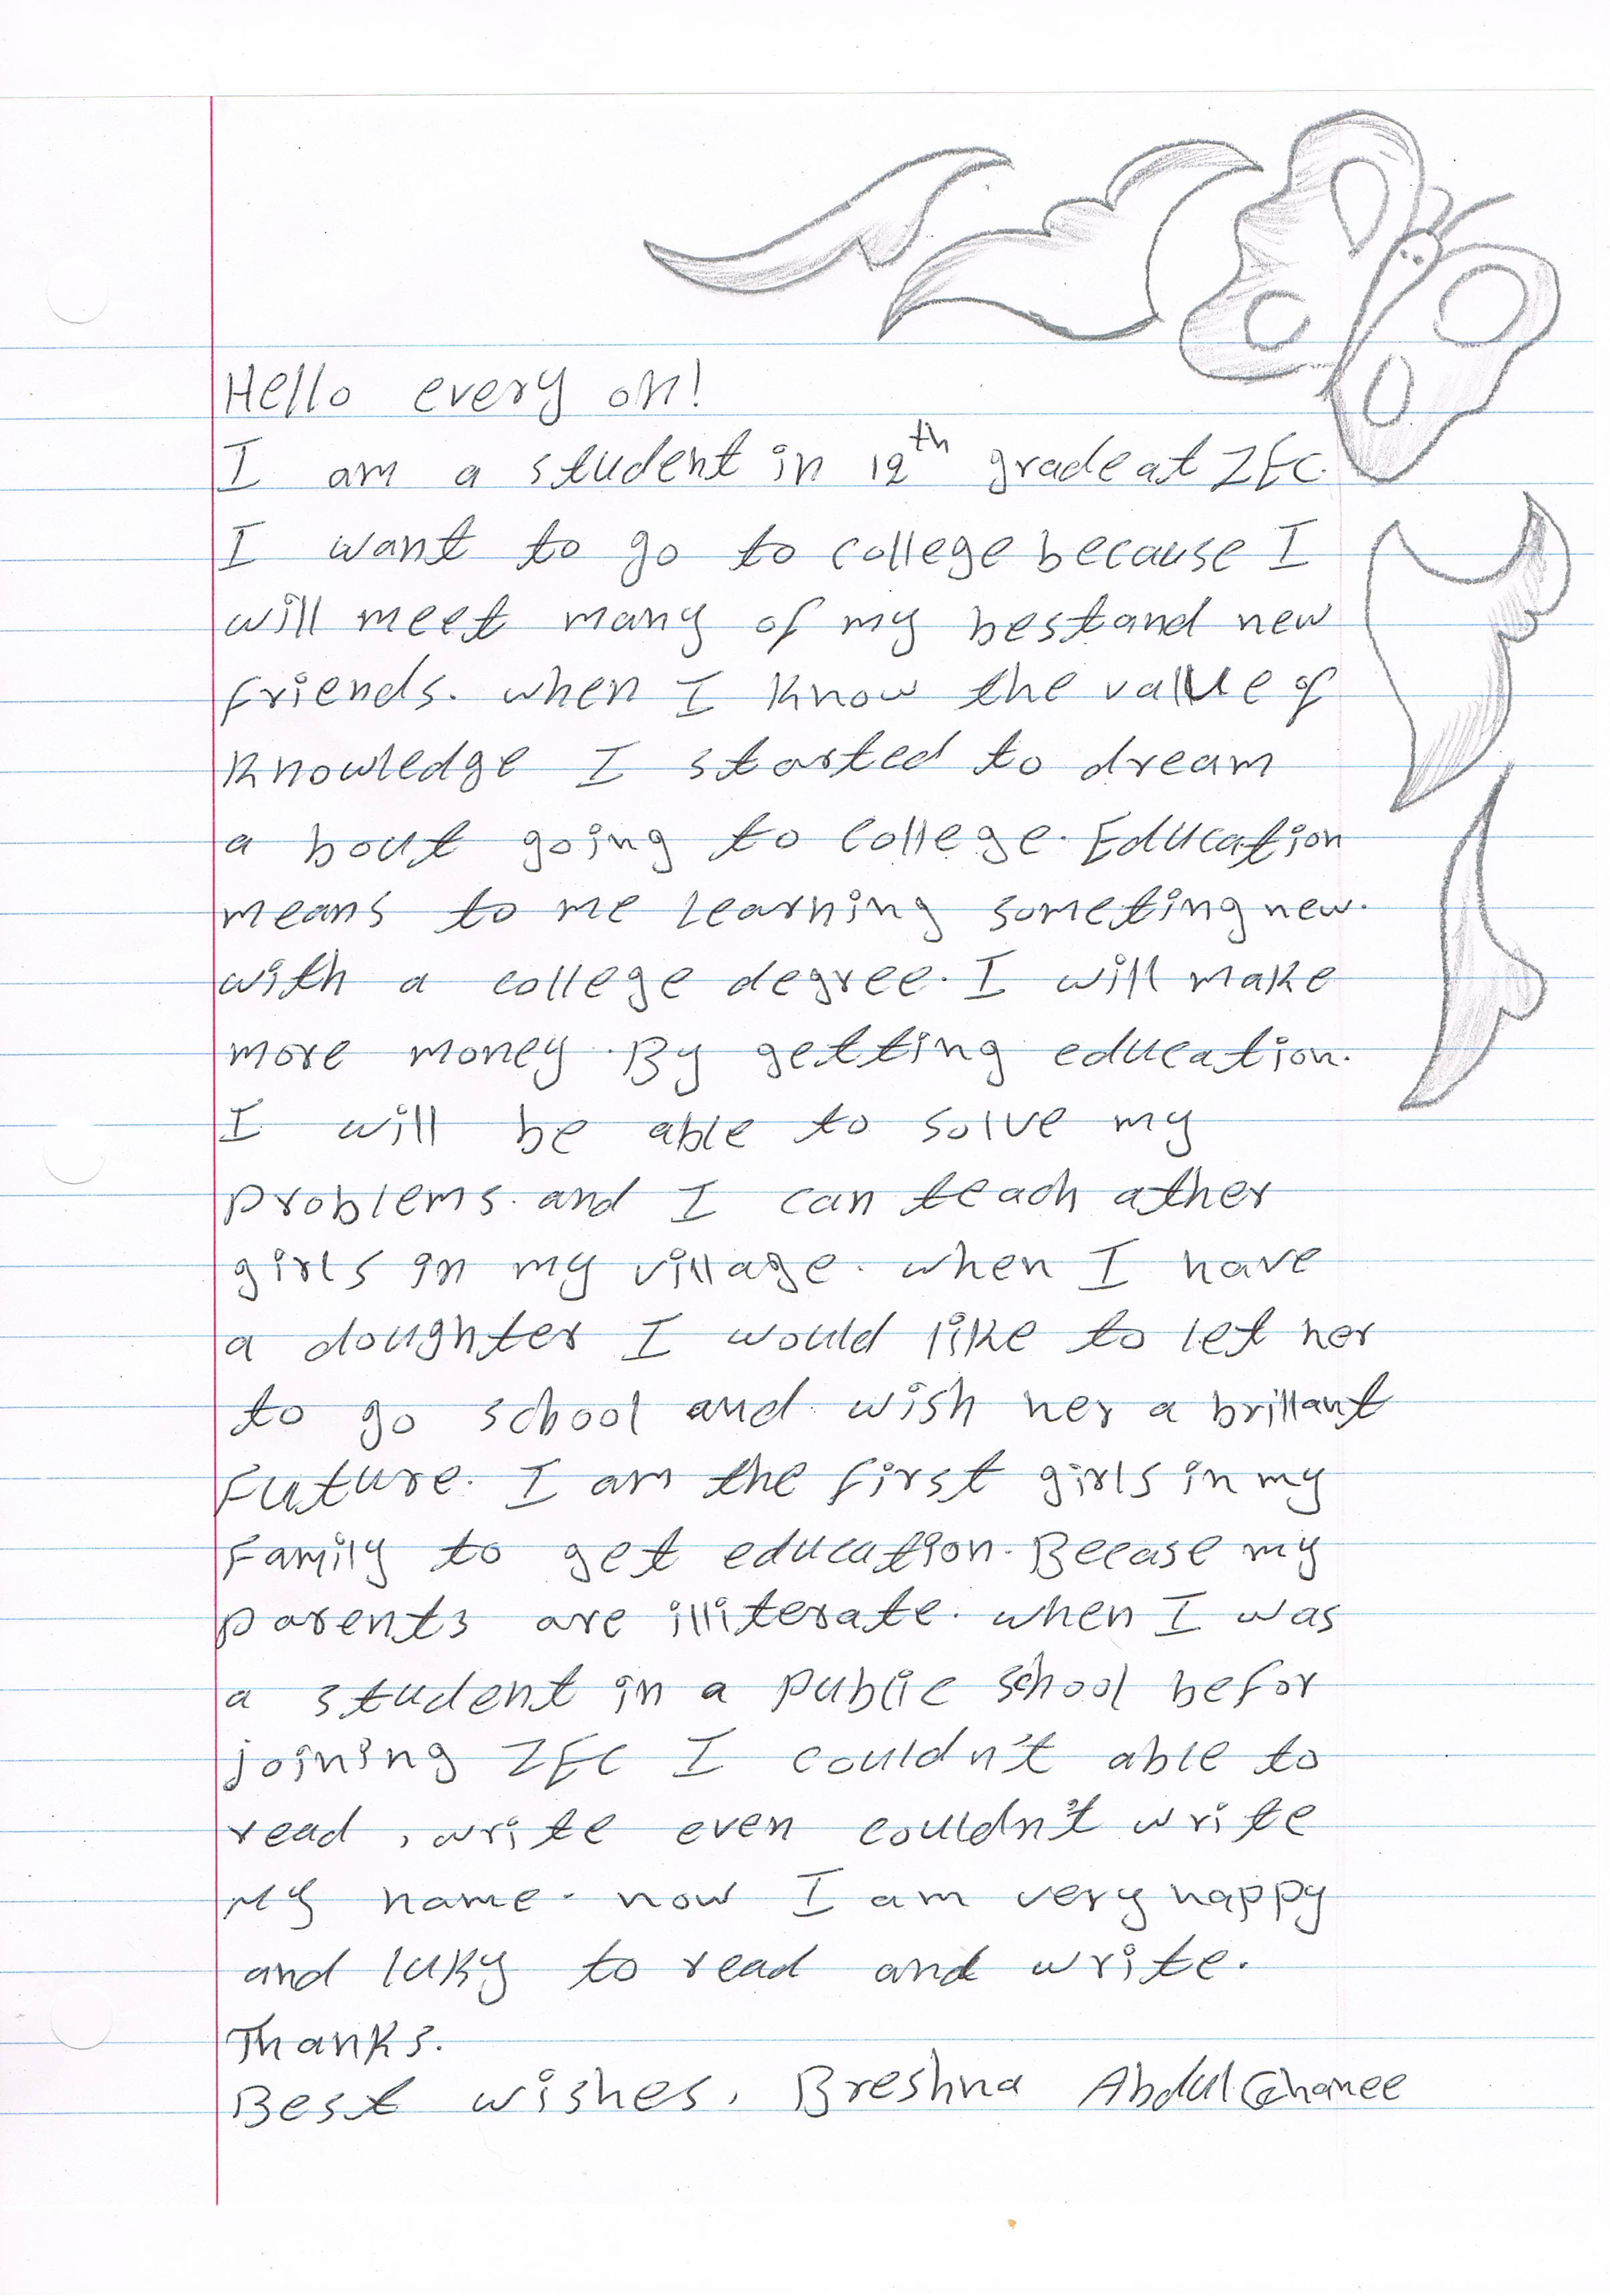 Hello every on!
I am a student in 12th grade at ZEC.
I want to go to college because I
will meet many of my best and new
friends. when I know the value of
knowledge I started to dream
a bout going to college. Education
means to me learning someting new.
with a college degree. I will make
more money. By getting education.
I will be able to solve my
problems. and I can teach ather
girls in my village. when I have
a doughter I would like to let her
to go school and wish her a brillant
Future. I am the first girls in my
Family to get education. Becase my
parents are illiterate. when I was
a student in a public school befor
joining ZEC I couldn't able to
read, write even couldn't write
My name. now I am very happy
and luky to read and write.
Thanks.
Best wishes, Breshna Abdul Ghanee